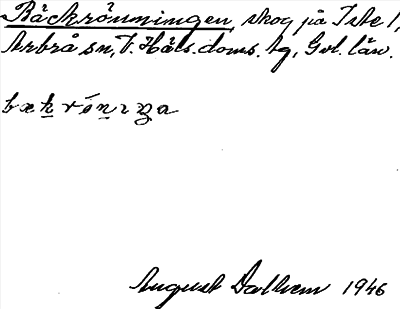 Bäckrönningen, skog på Iste 1,
Arbrå sn, V. Häls. doms. tg, Gvl. län.
bækrö́nıŋa
August Dalhem 1946